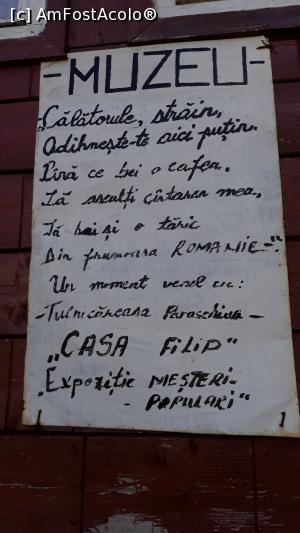 [c] AmFostAcolo®
-MUZEU-
„Călătorule, străin,
Odihnește-te aici puțin.
Până ce bei o cafea.
Să asculți cântarea mea.,
Să bei și o tăric
Din frumoasa ROMÂNIE-".
Un moment vesel cu:
-Tulnicăreasa Paraschiva-
„CASA FILIP"
„Expoziție MEȘTERI-
- POPULARI"